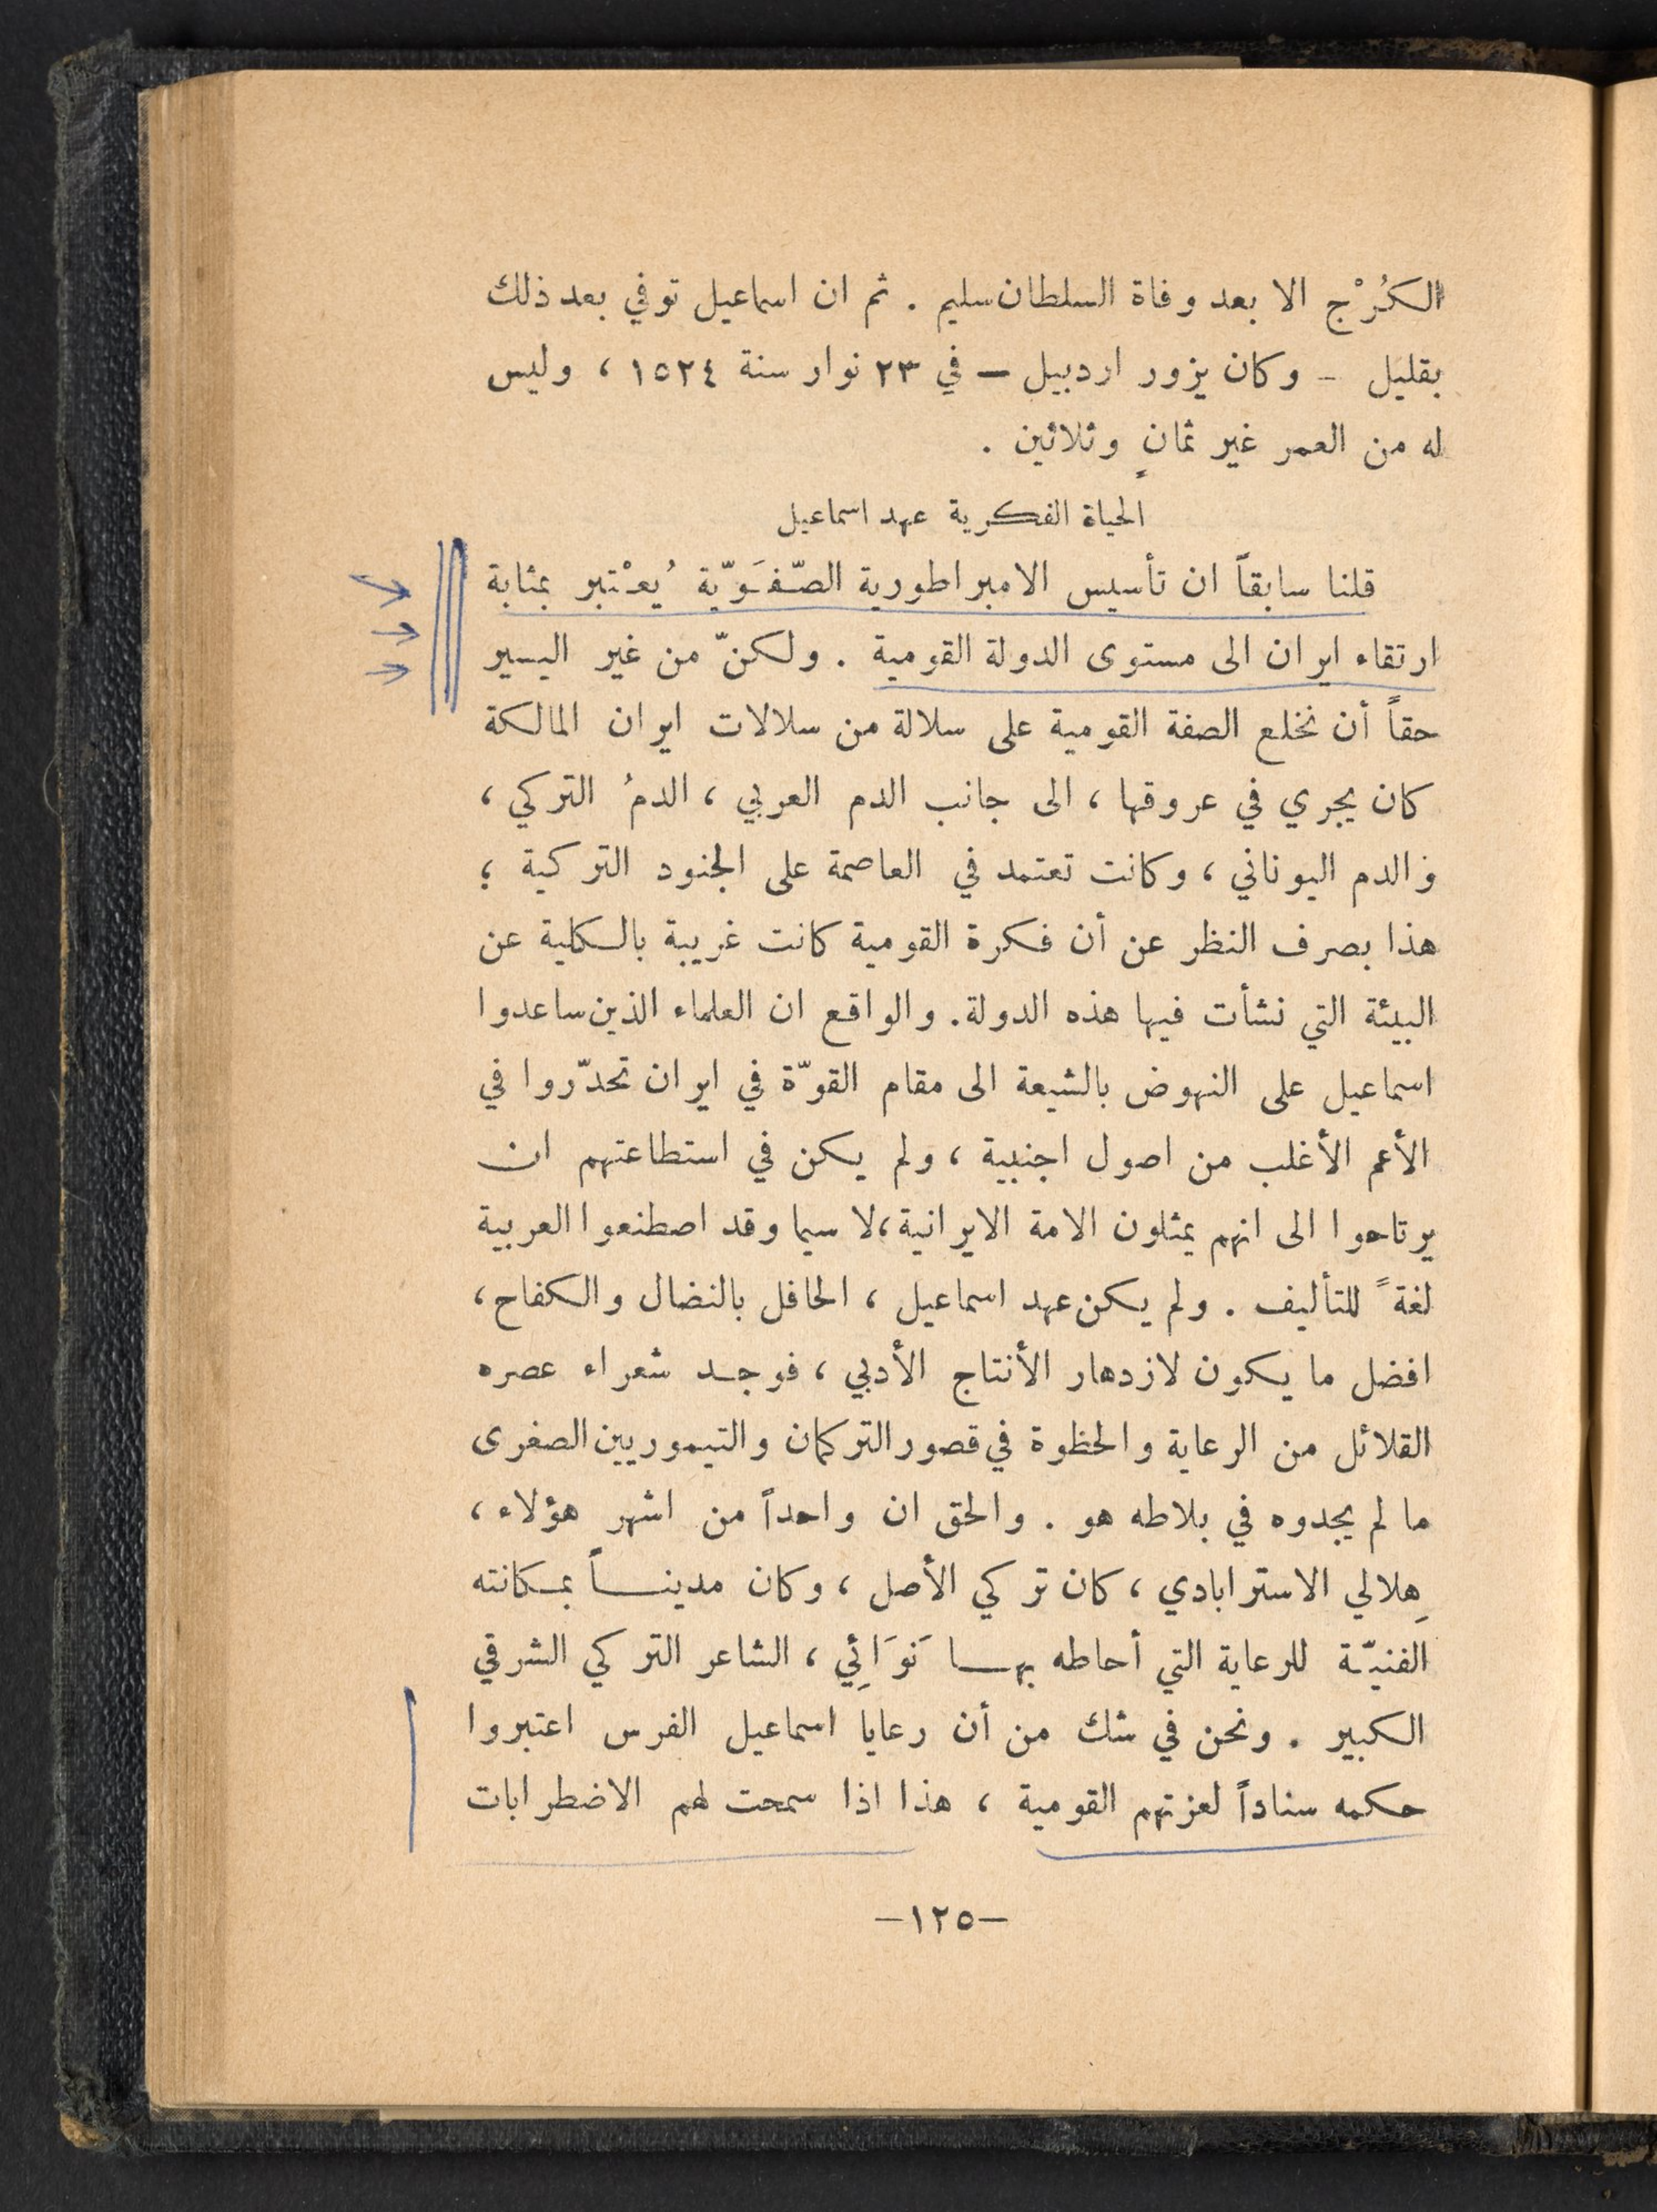 الكُرْج الا بعد وفاة السلطان سليم . ثم ان اسماعيل توفي بعد ذلك
بقليل – وكان يزور اردبيل – في ٢٣ نوار سنة ١٥٢٤ ، وليس
له من العمر غير ثمانٍ وثلاثين .
الحياة الفكرية عهد اسماعيل
قلنا سابقاً ان تأسيس الامبراطورية الصّفَوّية يُعْتبر بمثابة
ارتقاء ايران الى مستوى الدولة القومية . ولكنّ من غير اليسير
حقاً أن نخلع الصفة القومية على سلالة من سلالات ايران المالكة
كان يجري في عروقها ، الى جانب الدم العربي ، الدمُ التركي ،
والدم اليوناني ، وكانت تعتمد في العاصمة على الجنود التركية ؛
هذا بصرف النظر عن أن فكرة القومية كانت غريبة بالكلية عن
البيئة التي نشأت فيها هذه الدولة. والواقع ان العلماء الذين ساعدوا
اسماعيل على النهوض بالشيعة الى مقام القوّة في ايران تحدّروا في
الأعم الأغلب من اصول اجنبية ، ولم يكن في استطاعتهم ان
يرتاحوا الى انهم يمثلون الامة الايرانية، لا سيما وقد اصطنعوا العربية
لغةً للتأليف . ولم يكن عهد اسماعيل ، الحافل بالنضال والكفاح ،
افضل ما يكون لازدهار الأنتاج الأدبي ، فوجد شعراء عصره
القلائل من الرعاية والحظوة في قصور التركمان والتيموريين الصغرى
ما لم يجدوه في بلاطه هو . والحق ان واحداً من اشهر هؤلاء ،
هِلالي الاسترابادي ، كان تركي الأصل ، وكان مديناً بمكانته
الفنيّة للرعاية التي أحاطه بها نَوَائِي ، الشاعر التركي الشرقي
الكبير . ونحن في شك من أن رعايا اسماعيل الفرس اعتبروا
حكمه سناداً لعزتهم القومية ، هذا اذا سمحت لهم الاضطرابات
–١٢٥–